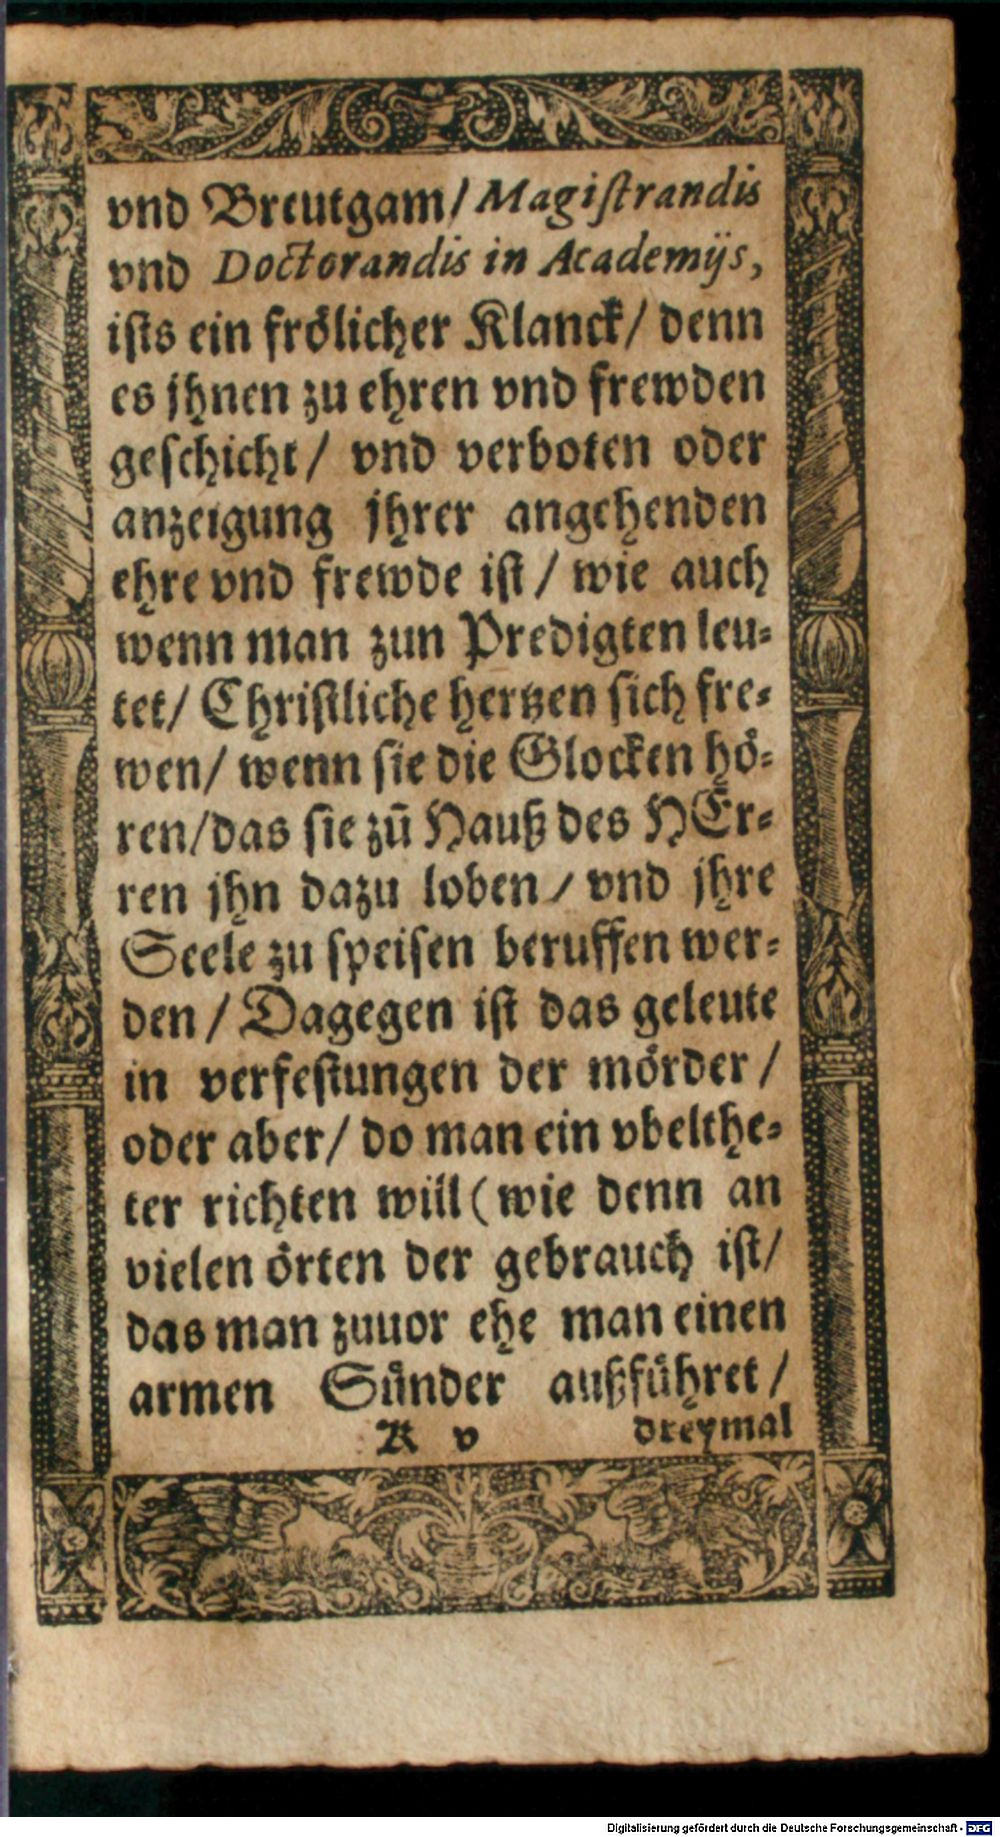 vnd Breutgam/ Magiſtrandis
vnd Doctorandis in Academijs,
iſts ein frölicher Klanck/ denn
es jhnen zu ehren vnd frewden
geſchicht/ vnd verboten oder
anzeigung jhrer angehenden
ehre vnd frewde iſt/ wie auch
wenn man zun Predigten leu⸗
tet/ Chriſtliche hertzen ſich fre⸗
wen/ wenn ſie die Glocken hö⸗
ren/das ſie zū Hauß des HEr⸗
ren jhn dazu loben/ vnd jhre
Seele zu ſpeiſen beruffen wer⸗
den/ Dagegen iſt das geleute
in verfeſtungen der mörder/
oder aber/ do man ein vbelthe⸗
ter richten will (wie denn an
vielen örten der gebrauch iſt/
das man zuuor ehe man einen
armen Sünder außführet/
K v dreymal
Digitalisierung gefördert durch die Deutsche Forschungsgemeinschaft - DFG